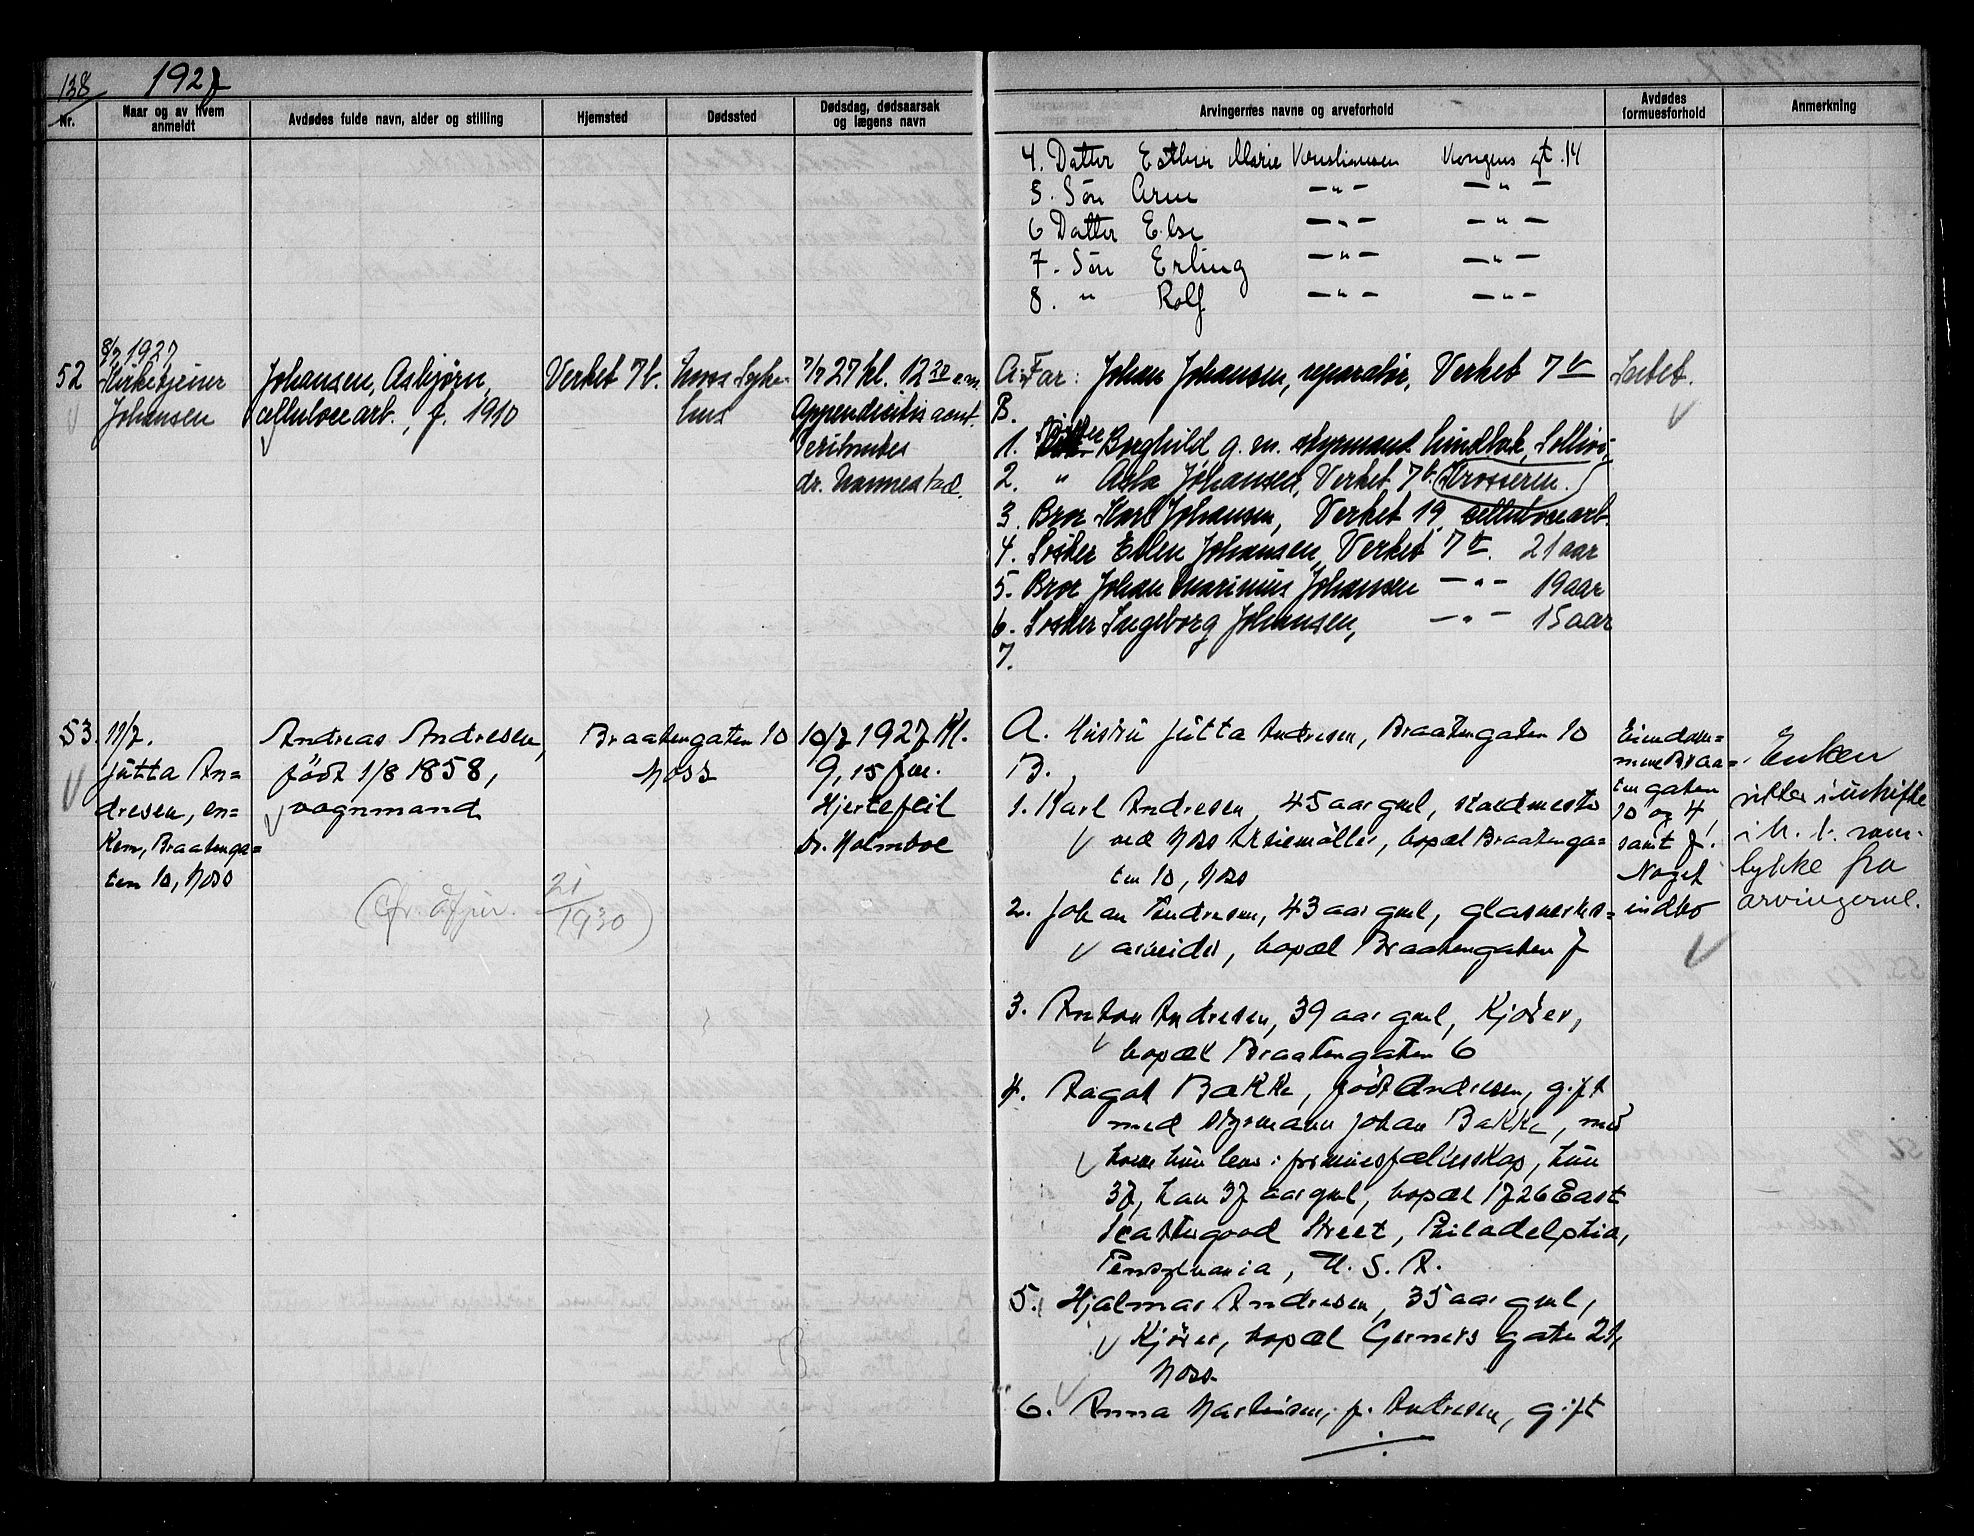 138
1927
Nr.
Naar og av hvem
anmeldt
Avdødes fulde navn, alder og stilling
Hjemsted
Dødssted
Dødsdag, dødsaarsak
og lægens navn
Arvingernes navne og arveforhold
Avdødes
formuesforhold
Anmerkning
4. Datter Esther Marie Kristiansen Kongens gt. 14
5. Søn Arne —"— —"—
6 Datter Else —"— —"—
7. Søn Erling —"— —"—
8. " Rolf —"— —"—
52
8/7 1927
Kirketjener
Johansen
Johansen, Asbjørn,
cellulosearb., f. 1910
Verket 7b.
Moss Syke-
hus
7/7 27 kl. 12 30 em.
Appendicitis acut.
Peritonites
dr. Narmestad.
A. Far: Johan Johansen, reparatør, Verket 7b
B.
1. Søster Borghild, g. m. styrmand Lindbak, Sollien,
2. " Asta Johansen, Verket 7b. (Krosseren.)
3. Bror Karl Johansen, Verket 19, cellulosearb.
4. Søster Ellen Johansen, Verket 7b. 21 aar
5. Bror Johan Marinius Johansen —"— 19 aar
6. Søster Ingeborg Johansen, —"— 15 aar
7.
Intet.
53.
11/7.
Jutta An=
dresen, en=
ken, Braatenga=
ten 10, Moss
Andreas Andresen,
født 1/8 1858,
vognmand
(Cfr. 21/1930)
Braatengaten 10
Moss
10/7 1927 Kl.
9,15 fm.
Hjertefeil
Dr. Holmboe
A. Hustru Jutta Andresen, Braatengaten 10
B.
1. Karl Andresen, 45 aar gml, staldmester
ved Moss Aktiemøller, bopæl Braatenga=
ten 10, Moss
2. Johan Andresen, 43 aar gml, glasverks=
arbeider, bopæl Braatengaten 7
3. Anton Andresen, 39 aar gml, Kjører,
bopæl Braatengaten 6
4. Aagot Bakke, født Andresen, gift
med styrmann Johan Bakke, med
hvem hun lever i formuesfællesskap, hun
37, han 37 aar gml, bopæl 1726 East
Scattergood Street, Philadelphia,
Pensylvania, U. S. A.
5. Hjalmar Andresen, 35 aar gml,
Kjører, bopæl Gerners gate 21,
Moss
6. Anna Martinsen, f. Andresen, gift
Eiendom=
mene Braa=
tengaten
10 og 4,
samt 7.
Noget
indbo
Enken
sitter i uskifte
i h. t. sam-
tykke fra
arvingerne.